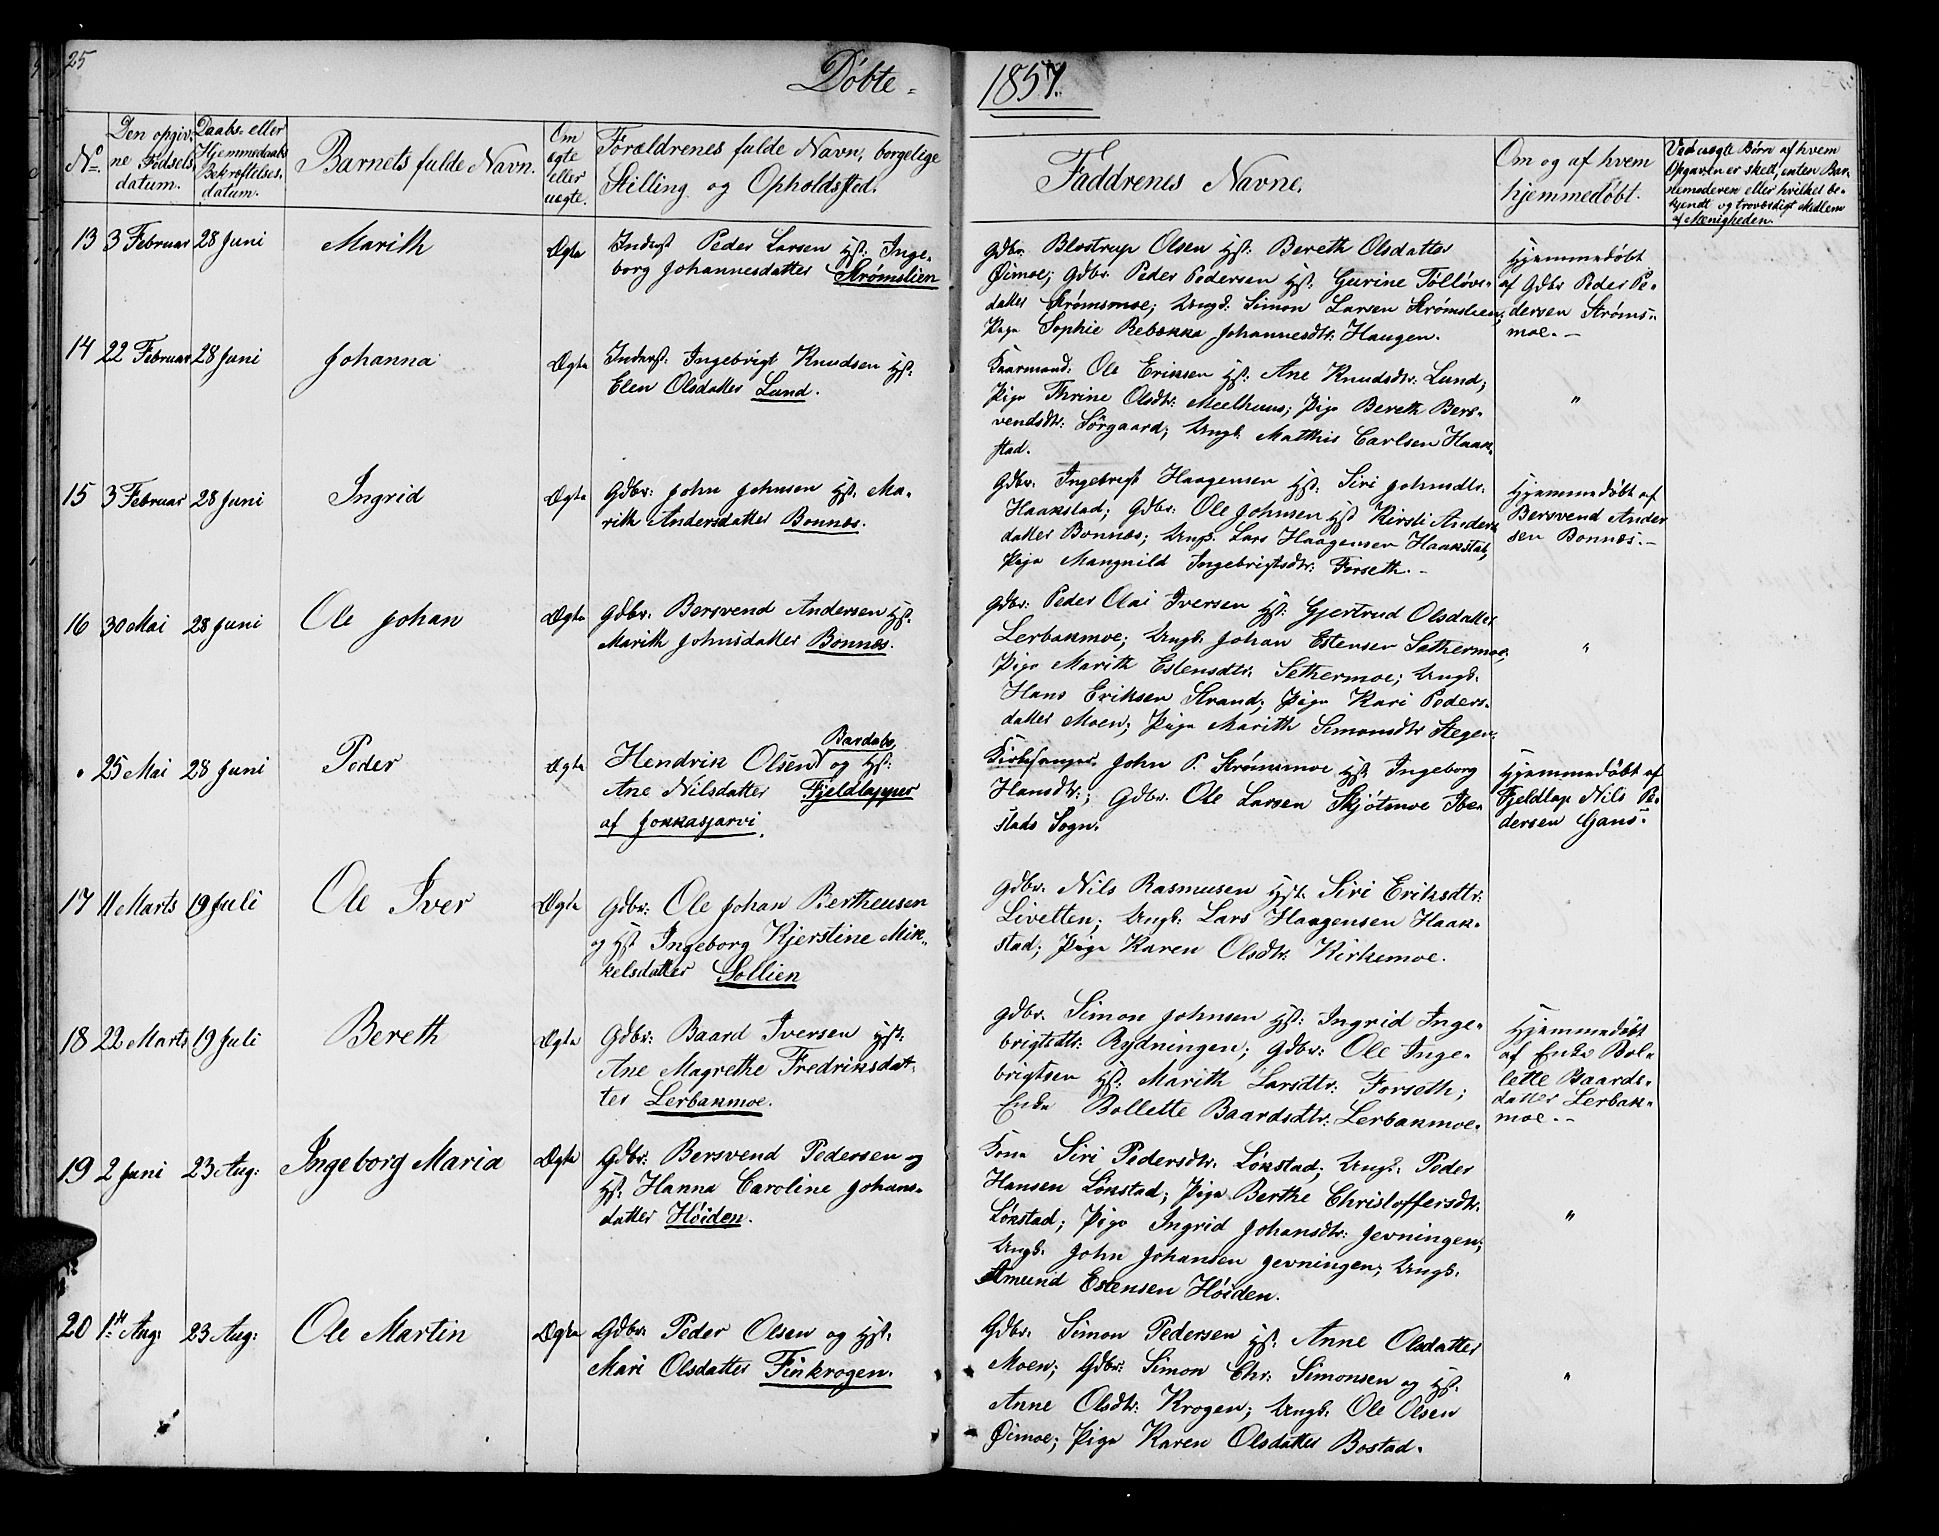 25
Døbte
1857.
No.
Den opgiv-
ne Fødsels
datum.
Daabs- eller
Hjemmedaabs
Bekræftelses-
datum.
Barnets fulde Navn.
Om
ægte
eller
uægte.
Forældrenes fulde Navn, borgelige
Stilling og Opholdsted.
Faddrenes Navne.
Om og af hvem
hjemmedøbt.
Ved uægte Børn af hvem
Opgaven er skedt, enten Bar-
nemoderen eller hvilket be-
kjendt og troværdigt Medlem
af Menigheden.
13 3 Februar 28 Juni Marith Ægte
Inderst Peder Larsen Hst: Inge-
borg Johannesdatter Strømslien
Gdbr. Blostrup Olsen Hst: Bereth Olsdatter
Øimoe; Gdbr. Peder Pedersen Hst. Gurine Tølløvs-
datter Strømsmoe; Ungk: Simon Larsen Strømslien;
Pige Sophie Rebekka Johannesdtr: Haugen.
Hjemmedøbt
af Gdbr Peder Pe-
dersen Strøms-
moe.-
14 22 Februar 28 Juni Johanna Ægte
Inderst: Ingebrigt Knudsen Hst:
Elen Olsdatter Lund.
Kaarmand: Ole Eriksen Hst: Ane Knudsdtr: Lund;
Pige Thrine Olsdtr: Meelhuus; Pige Bereth Bers-
vendsdtr: Sörgaard; Ungk. Matthis Carlsen Haak-
stad.
"
15 3 Februar 28 Juni Ingrid Ægte
Gdbr: John Johnsen Hst. Ma-
rith Andersdatter Bonnes.
Gdbr. Ingebrigt Haagensen Hst: Siri Johnsdtr.
Haakstad; Gdbr: Ole Johnsen Hst Kirsti Anders
datter Bonnes; Ungk. Lars Haagensen Haakstad;
Pige Mangnild Ingebrigtsdtr: Forseth.-
Hjemmedøbt af
Bersvend Ander
sen Bonnes.-
16 30 Mai 28 Juni Ole Johan Ægte
Gdbr. Bersvend Andersen Hst.
Marith Johnsdatter Bonnes.
Gdbr: Peder Olai Iversen Hst: Gjertrud Olsdatter
Lerbakmoe; Ungk. Johan Estensen Sæthermoe;
Pige Marith Estensdtr. Sethermoe; Ungk.
Hans Eriksen Strand; Pige Kari Peders-
datter Moen; Pige Marith Simonsdtr Stegen.
"
25 Mai 28 Juni Peder Ægte
Bardobs
Hendrik Olsen og Hst:
Ane Nilsdatter Fjeldlapper
af Jokkasjarvi.
Kirkesanger John P. Strømsmoe Hst. Ingeborg
Hansdtr:; Gdbr. Ole Larsen Skjøtmoe Ibe-
stads Sogn.
Hjemmedøbt af
Fjeldlap Nils Pe-
dersen Gans-
17 11 Marts 19 Juli Ole Iver Ægte
Gdbr: Ole Johan Bertheusen
og Hst Ingeborg Kjerstine Mik-
kelsdatter Sollien
Gdbr. Nils Rasmusen Hst. Siri Eriksdtr:
Livetten; Ungk: Lars Haagensen Haak-
stad; Pige Karen Olsdtr. Kirkemoe.
18 22 Marts 19 Juli Bereth Ægte
Gdbr: Baard Iversen Hst:
Ane Magrethe Fredriksdat-
ter Lerbakmoe.
Gdbr. Simon Johnsen Hst: Ingrid Inge-
brigtsdtr: Rydningen; Gdbr: Ole Inge-
brigtsen Hst: Marith Larsdtr: Forseth;
Enke Bollette Baardsdtr: Lerbakmoe.
Hjemmedøbt
af Enke Bol-
lette Baards-
datter Lerbak-
moe.-
19 2 Juni 23 Aug: Ingeborg Maria Ægte
Gdbr: Bersvend Pedersen og
Hst: Hanna Caroline Johans-
datter Høiden.
Kone Siri Pedersdtr. Lønstad; Ungk. Peder
Hansen Lønstad; Pige Berthe Christoffersdtr.
Lønstad; Pige Ingrid Johansdtr: Jevningen;
Ungk. John Johansen Jevningen; Ungk.
Amund Estensen Høiden.
"
20 1ste Aug: 23 Aug: Ole Martin Ægte
Gdbr. Peder Olsen og Hst.
Mari Olsdatter Finkrogen.
Gdbr. Simon Pedersen Hst. Anne Olsdatter
Moen; Gdbr: Simon Chr: Simonsen og Hst.
Anne Olsdtr: Krogen; Ungk: Ole Olsen
Øimoe; Pige Karen Olsdatter Bostad.
"